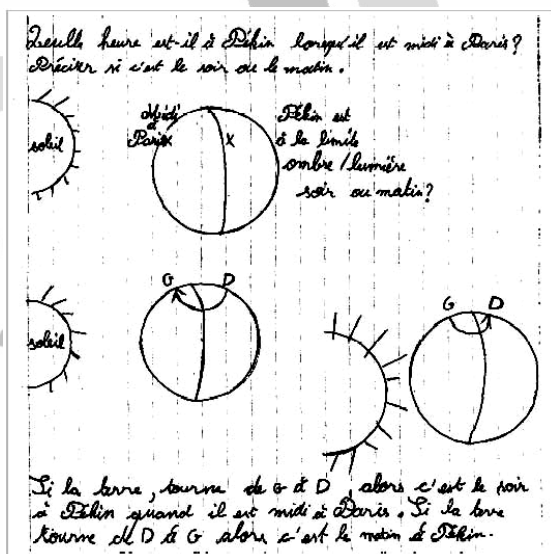 Quelle heure est-il à Pékin lorsqu'il est midi à Paris?
Préciser si c'est le soir ou le matin.
soleil
Midi
à
Paris x
x
Pékin est
à la limite
ombre/lumière
soir ou matin?
soleil
G D
G D
Si la terre, tourne de G à D, alors c'est le soir
à Pékin quand il est midi à Paris. Si la terre
tourne de D à G alors c'est le matin à Pékin.